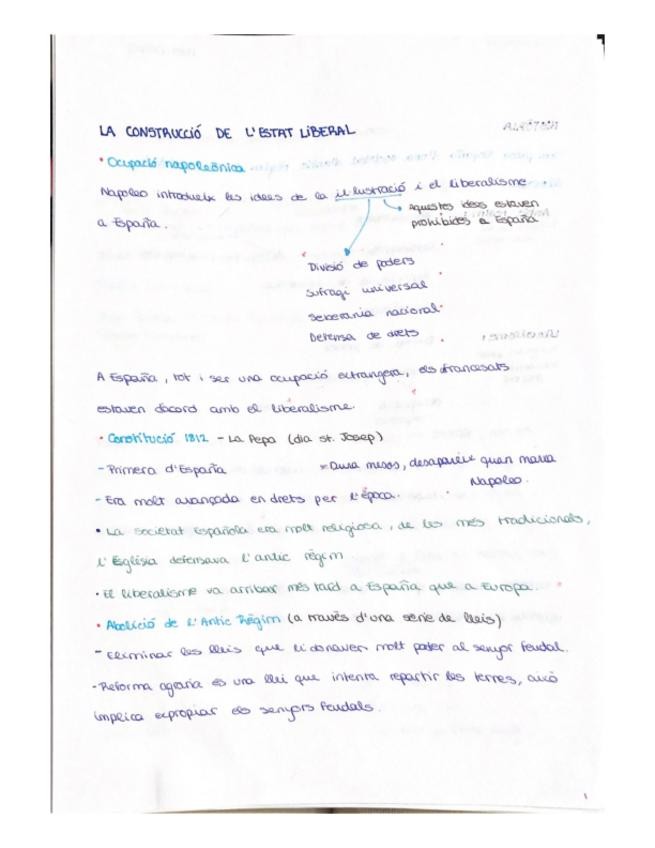 LA CONSTRUCCIÓ DE L'ESTAT LIBERAL
• Ocupació napoleònica
Napoleo introdueix les idees de la il·lustració i el liberalisme
a España.
Aquestes idees estaven
prohibides a España
Divisió de poders
Sufragi universal
Soberania nacional
Defensa de drets
A España, tot i ser una ocupació extrangera, els afrancesats
estaven d'acord amb el liberalisme.
• Constitució 1812 - La Pepa (dia st. Josep)
- Primera d'España
* Dura mesos, desapareix quan marxa
Napoleo.
- Era molt avançada en drets per l'època.
• La societat Española era molt religiosa, de les més tradicionals,
l'Església defensava l'antic règim
• El liberalisme va arribar més tard a España que a Europa.
• Abolició de l'Antic Règim (a través d'una sèrie de lleis)
- Eliminar les lleis que li donaven molt poder al senyor feudal.
- Reforma agraria és una llei que intenta repartir les terres, això
implica expropiar els senyors feudals.